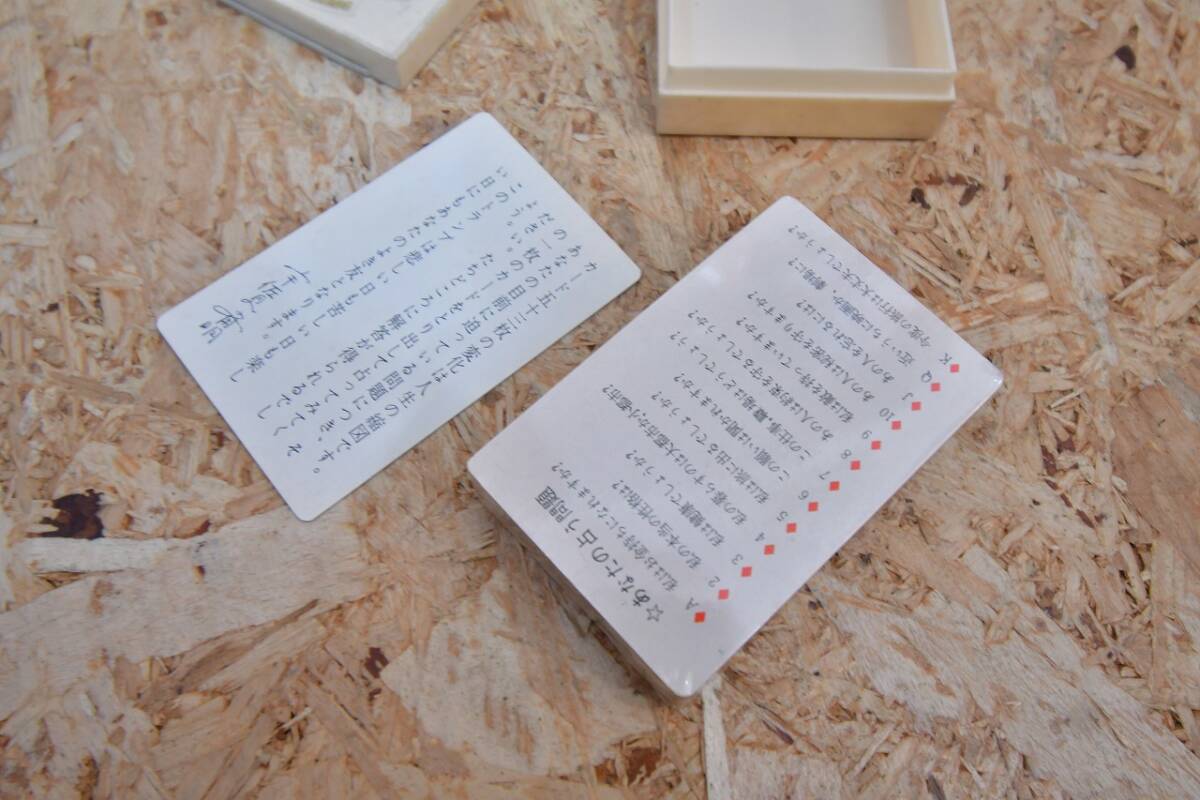 カード五十三枚の変化は人生の縮図です。
あなたの目前に迫っている問題につき、そ
の一枚のカードをとり出して占ってみてく
ださい。たちどころに解答が得られるでし
ょう。
このトランプは悲しい日も苦しい日も楽し
い日にもあなたのよき友となります。
☆あなたの占う問題
♦A 私はお金持ちになれますか?
♦2 私の本当の性格は?
♦3 私は健康でしょうか?
♦4 私の暮らすのは大都市か小都市?
♦5 私は旅に出るでしょうか?
♦6 この願いは聞かれますか?
♦7 この仕事、職場はどうでしょう?
♦8 あの人は約束を守るでしょうか?
♦9 私は敵を持っていますか?
♦10 あの人は秘密を守りますか?
♦J あの人を忘れるには?
♦Q 近いうちに映画か、劇場に?
♦K 今度の旅行は大丈夫でしょうか?